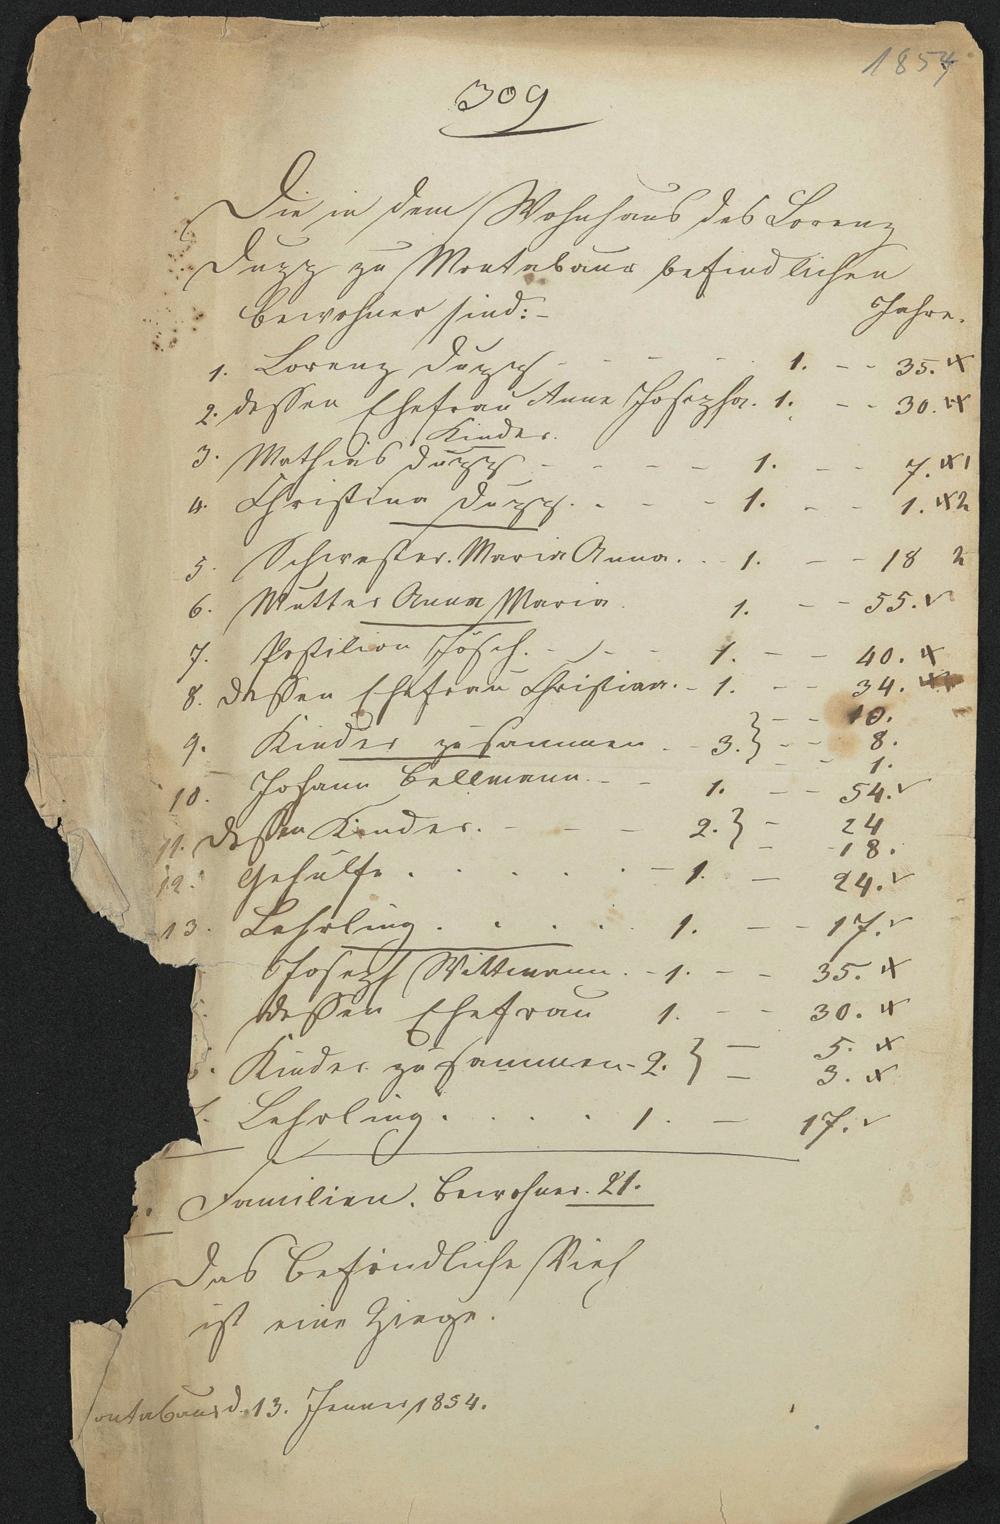 1854
309
Die in dem Wohnhaus des Lorenz
Dupp zu Montabaur befindlichen
Bewohner sind:- Jahre.
1. Lorenz Dupp - - - - 1. - - 35. x
2. dessen Ehefrau Anna Josepha. 1. - - 30. x
Kinder.
3. Mathias Dupp - - - - 1. - - 7. x 1
4. Christina Dupp. - - - 1. - - 1. x 2
5. Schwester. Maria Anna. - 1. - - 18 2
6. Mutter Anna Maria. 1. - - 55. v
7. Postilion Josch. - - - 1. - - 40. x
8. dessen Ehefrau Christian. - 1. - - 34. x
10.
9. Kinder zusammen - 3. } - - 8.
1.
10. Johann Bellmann - - 1. - - 54. v
11. dessen Kinder. - - - 2. } - 24
- 18.
12. Gehülfe . . . . . - 1. - 24. v
13. Lehrling . . . . . 1. - - 17. v
Joseph Wittmann. - 1. - - 35. x
dessen Ehefrau 1. - - 30. x
Kinder zusammen - 2. } - 5. x
- 3. x
Lehrling . . . . 1. - 17. v
Familien. Bewohner. 21.
Das befindliche Vieh
ist eine Ziege.
ontabaur d. 13. Jenner 1854.